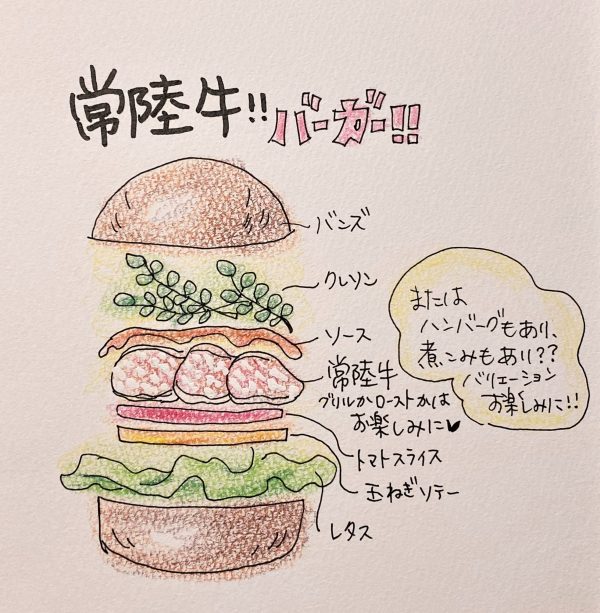 常陸牛!! バーガー!!
バンズ
クレソン
ソース
常陸牛
グリルかローストかは
お楽しみに♥
トマトスライス
玉ねぎソテー
レタス
または
ハンバーグもあり、
煮こみもあり??
バリエーション
お楽しみに!!